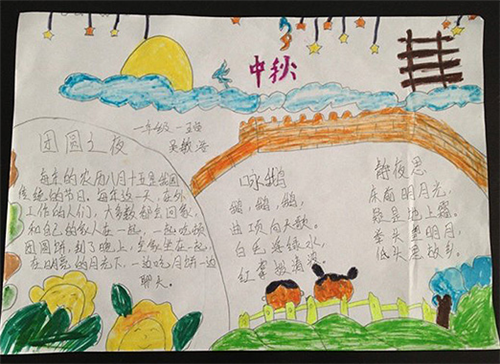 中秋
一年级一五班
团圆之夜
每年的农历八月十五是我国
传统的节日。每年这一天，在外
工作的人们，大多数都会回家
和自己的家人在一起，一起吃顿
团圆饼，到了晚上，坐在一起，
在明亮的月光下，一边吃月饼一边
聊天。
咏鹅
鹅，鹅，鹅，
曲项向天歌。
白毛浮绿水，
红掌拨清波。
静夜思
床前明月光，
疑是地上霜。
举头望明月，
低头思故乡。